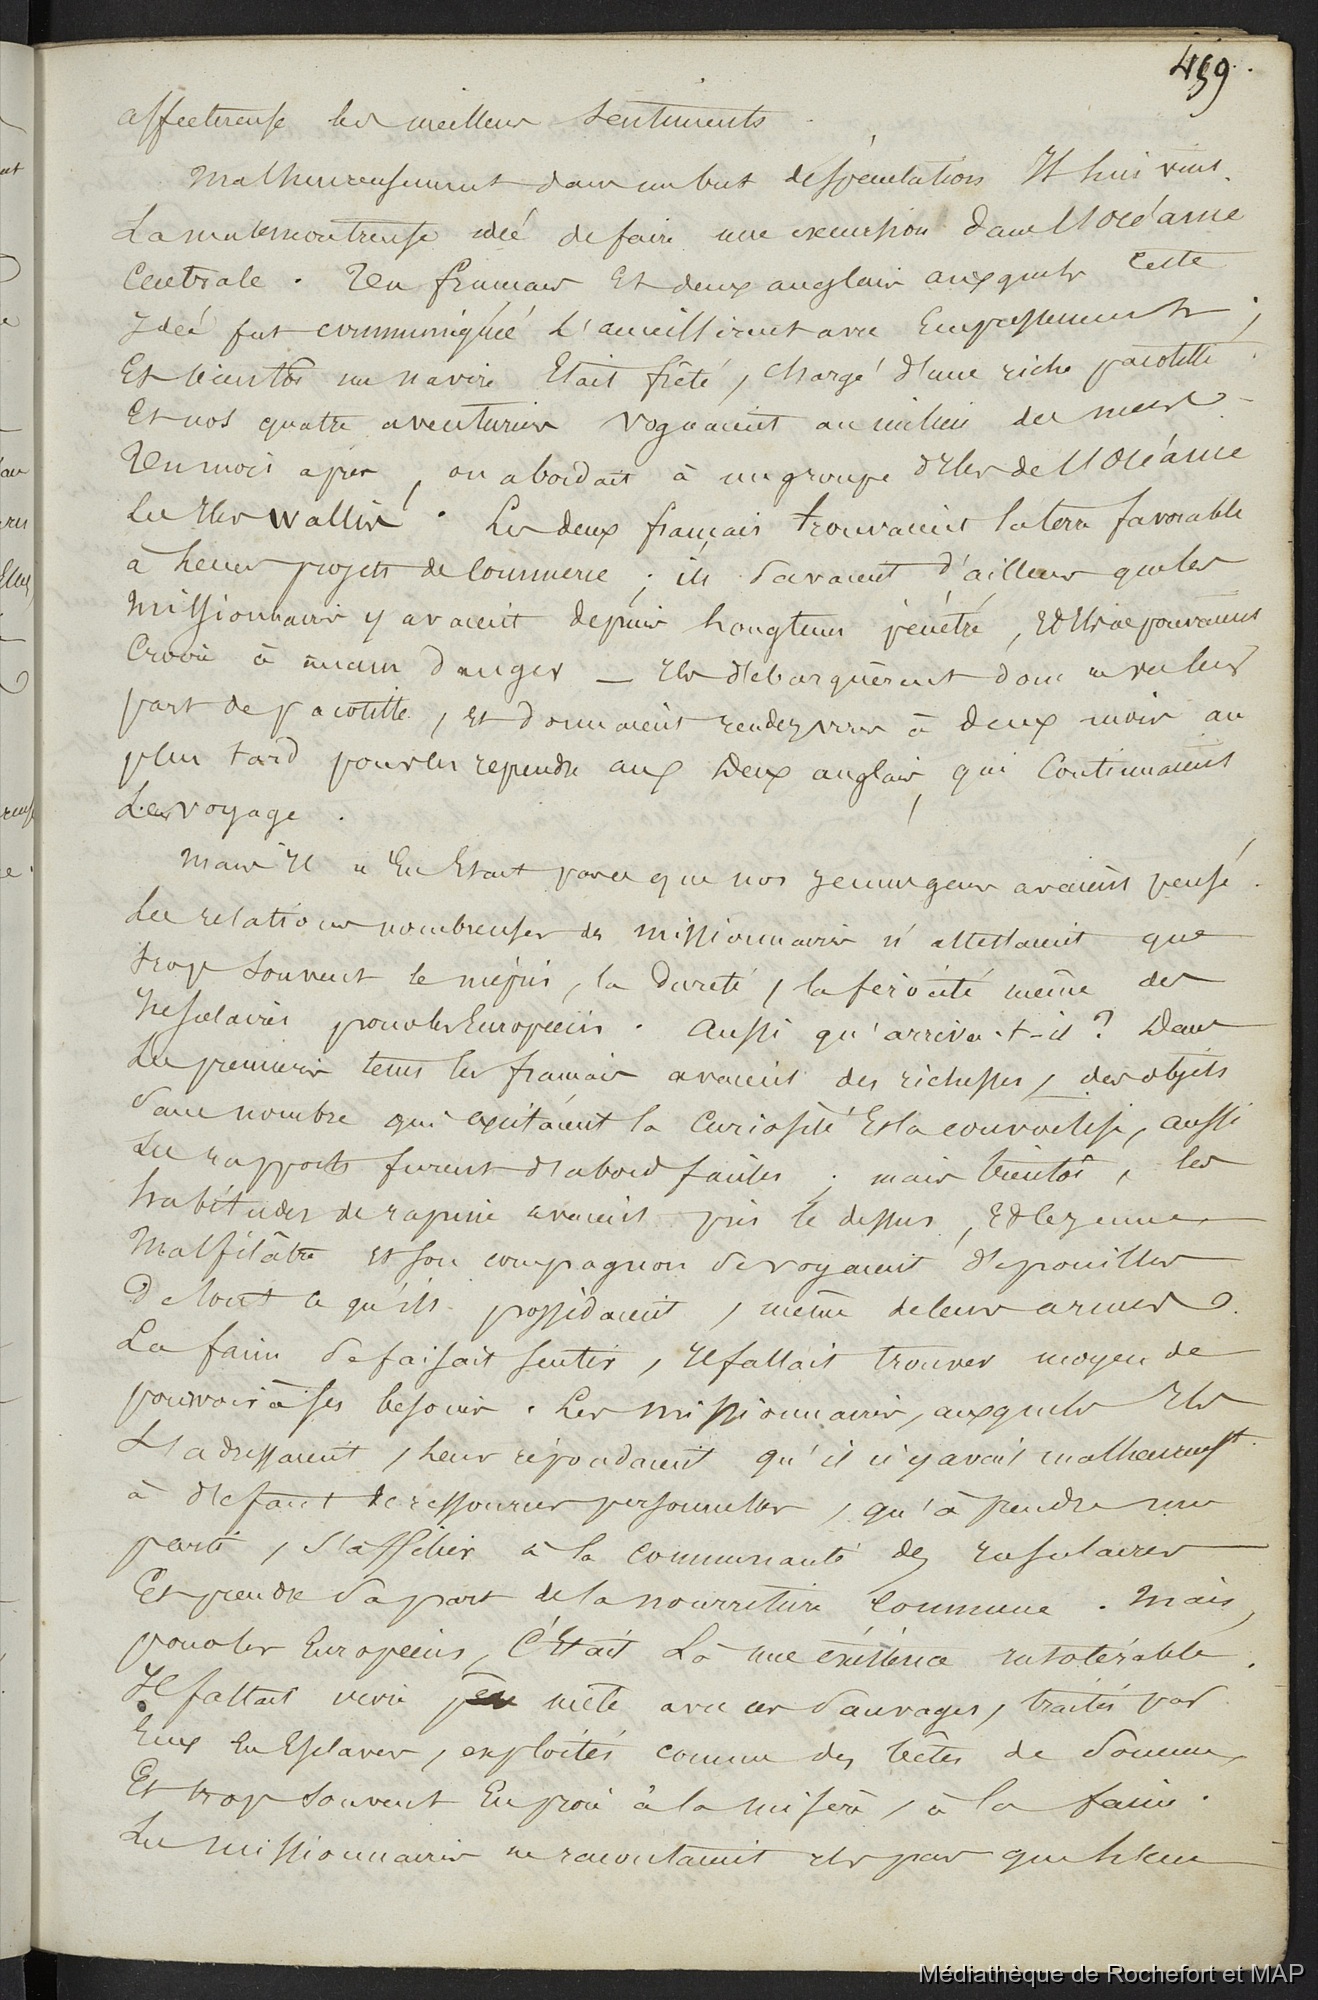 459.
affectueuse les meilleurs sentiments.
Malheureusement dans un but de spéculation Il lui vint
La malencontreuse idée de faire une excursion dans l'Océanie
Centrale. Un français Et deux anglais auxquels cette
Idée fut communiquée l'accueillirent avec Empressement ;
Et bientôt un navire Etait frêté, chargé d'une riche pacotille
Et nos quatre aventuriers voguaient au milieu des mers
Un mois après, on abordait à un groupe d'Iles de l'Océanie
Les Iles Wallis. Les deux français trouvaient la terre favorable
à Leurs projets de Commerce ; ils savaient d'ailleurs que les
Missionnaires y avaient depuis longtems pénétré, Et Ils ne pouvaient
Croire à aucun danger — Ils débarquèrent donc avec leur
part de pacotille, et donnaient rendez vous à deux mois au
plus tard pour les reprendre aux deux anglais, qui Continuaient
Leur voyage.
Mais Il n'En Etait pas ce que nos jeunes gens avaient pensé.
Les relations nombreuses des missionnaires n'attestaient que
trop souvent le mépris, la dureté, la férocité même des
Insulaires pour les Européens. Aussi qu'arriva-t-il ? Dans
Les premiers tems les français avaient des richesses, des objets
sans nombre qui excitaient la Curiosité Et la convoitise, aussi
Les rapports furent d'abord faciles ; mais bientôt, les
habitudes de rapine avaient pris le dessus, Et le jeune
Malfilâtre et son compagnon se voyaient dépouillés
De tout ce qu'ils possédaient, même de leurs armes.
La faim se faisait sentir, Il fallait trouver moyen de
pourvoir à ses besoins. Les missionnaires, auxquels Ils
s'adressaient, Leur répondaient qu'il n'y avait malheureust
à défaut de ressources personnelles, qu'à prendre un
parti, s'affilier à la communauté des Insulaires
Et prendre sa part de la nourriture Commune. Mais,
pour les Européens, C'Etait Là une éxistence intolérable.
Il fallait vivre mêlé avec ces sauvages, traités par
Eux En Esclaves, exploités comme des bêtes de somme,
Et trop souvent En proie à la misère, à la faim.
Les missionnaires ne racontaient ils pas que l'eau